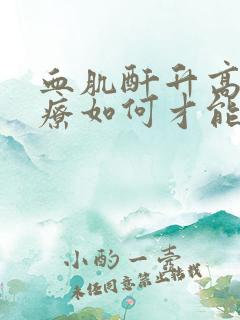 血肌酐升高
療如何才能
小酌一壺
未经同意禁止转载